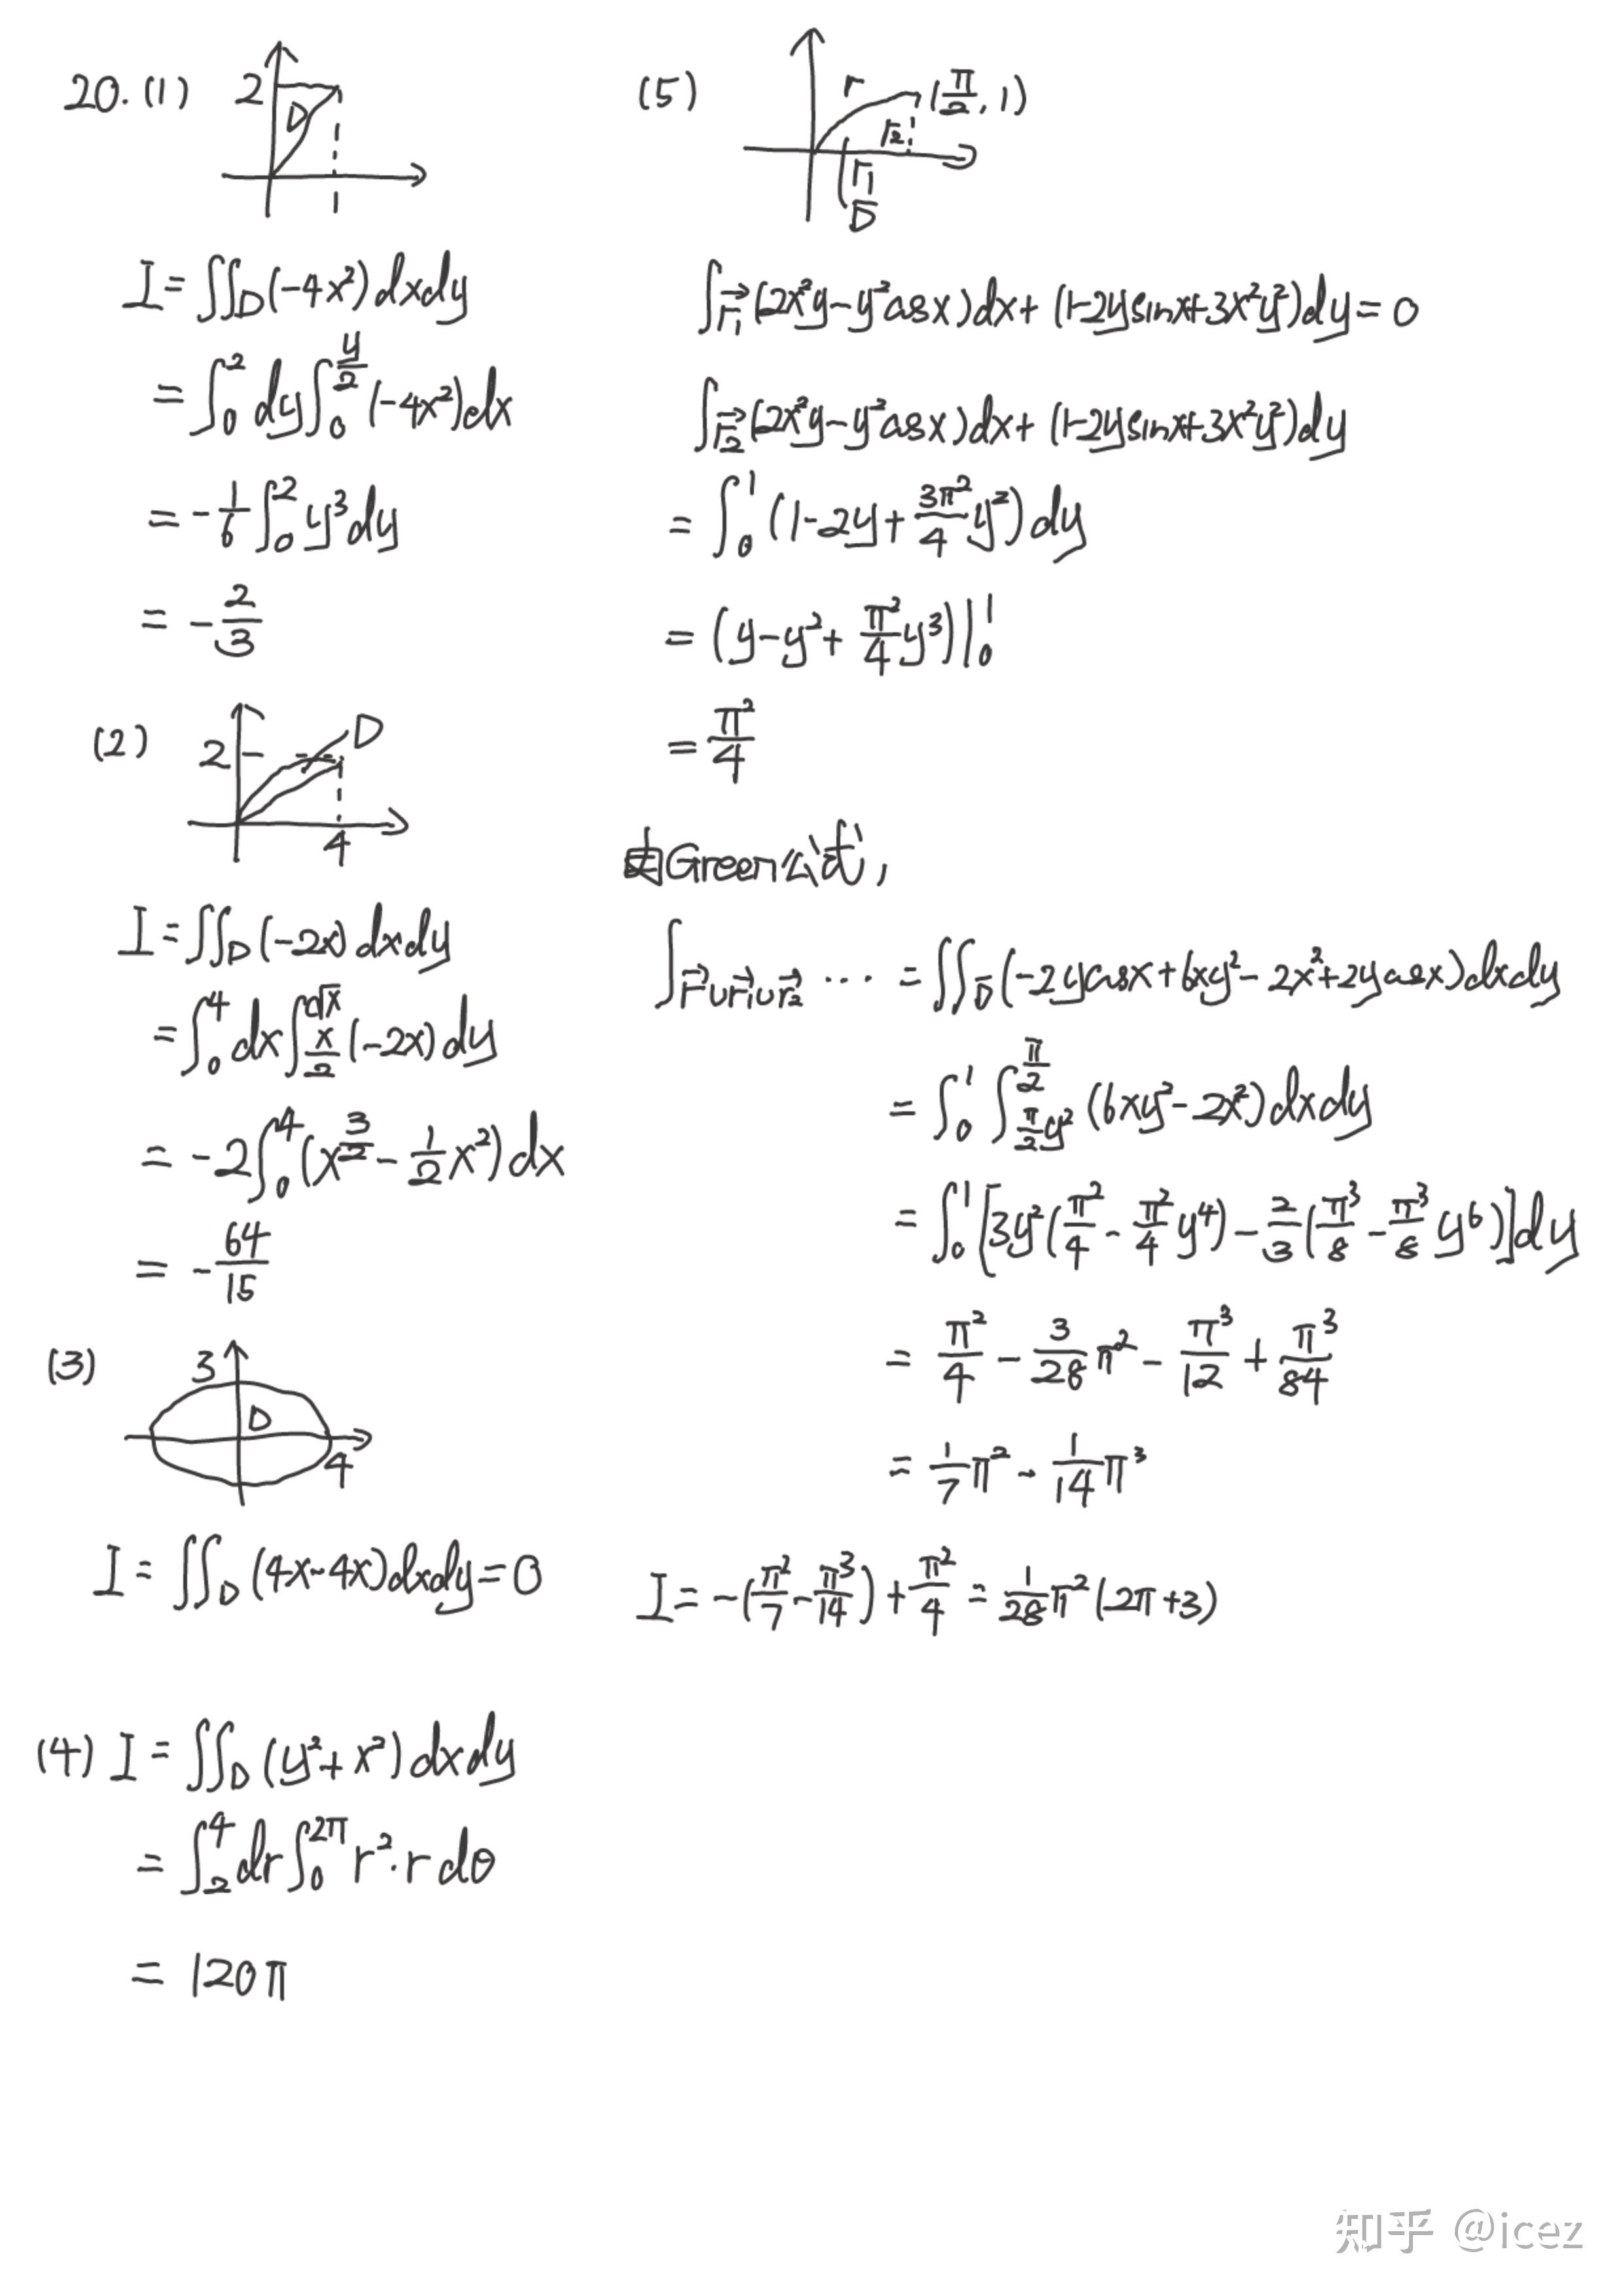 20.(1)
2
D
1
I = ∬_D (-4x²) dxdy
= ∫_0^2 dy ∫_0^{y/2} (-4x²) dx
= -1/6 ∫_0^2 y³ dy
= -2/3
(2)
2
D
4
I = ∬_D (-2x) dxdy
= ∫_0^4 dx ∫_{x/2}^{√x} (-2x) dy
= -2 ∫_0^4 (x^{3/2} - 1/2 x²) dx
= -64/15
(3)
3
D
4
I = ∬_D (4x-4x) dxdy = 0
(4) I = ∬_D (y²+x²) dxdy
= ∫_2^4 dr ∫_0^{2π} r²·r dθ
= 120π
(5)
Γ
(π/2, 1)
Γ₂
Γ₁
D
∫_{Γ₁→} (2x²y-y²cosx)dx + (1-2ysinx+3x²y²)dy = 0
∫_{Γ₂→} (2x²y-y²cosx)dx + (1-2ysinx+3x²y²)dy
= ∫_0^1 (1-2y+3π²/4 y²) dy
= (y-y²+π²/4 y³)|_0^1
= π²/4
由Green公式,
∫_{Γ→∪Γ₁→∪Γ₂→} ··· = ∬_D (-2ycosx+6xy²-2x²+2ycosx) dxdy
= ∫_0^1 ∫_{π/2 y²}^{π/2} (6xy²-2x²) dxdy
= ∫_0^1 [3y²(π²/4 - π²/4 y⁴) - 2/3(π³/8 - π³/8 y⁶)] dy
= π²/4 - 3/28 π² - π³/12 + π³/84
= 1/7 π² - 1/14 π³
I = -(π²/7 - π³/14) + π²/4 = 1/28 π²(2π+3)
知乎 @icez